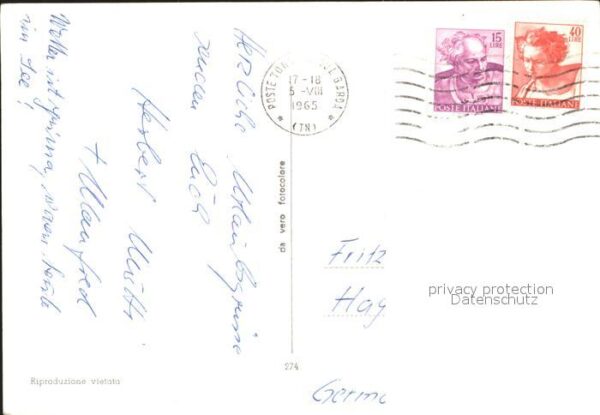 Herzliche Urlaubsgrüsse
senden Euch
Herbert
+ Manfred
Wetter ist prima, waren heute
im See!
15
LIRE
POSTE ITALIANE
40
LIRE
POSTE ITALIANE
17-18
5-VIII
1965
(TN)
da vero fotocolore
Fritz
Hag
Germ
privacy protection
Datenschutz
274
Riproduzione vietata